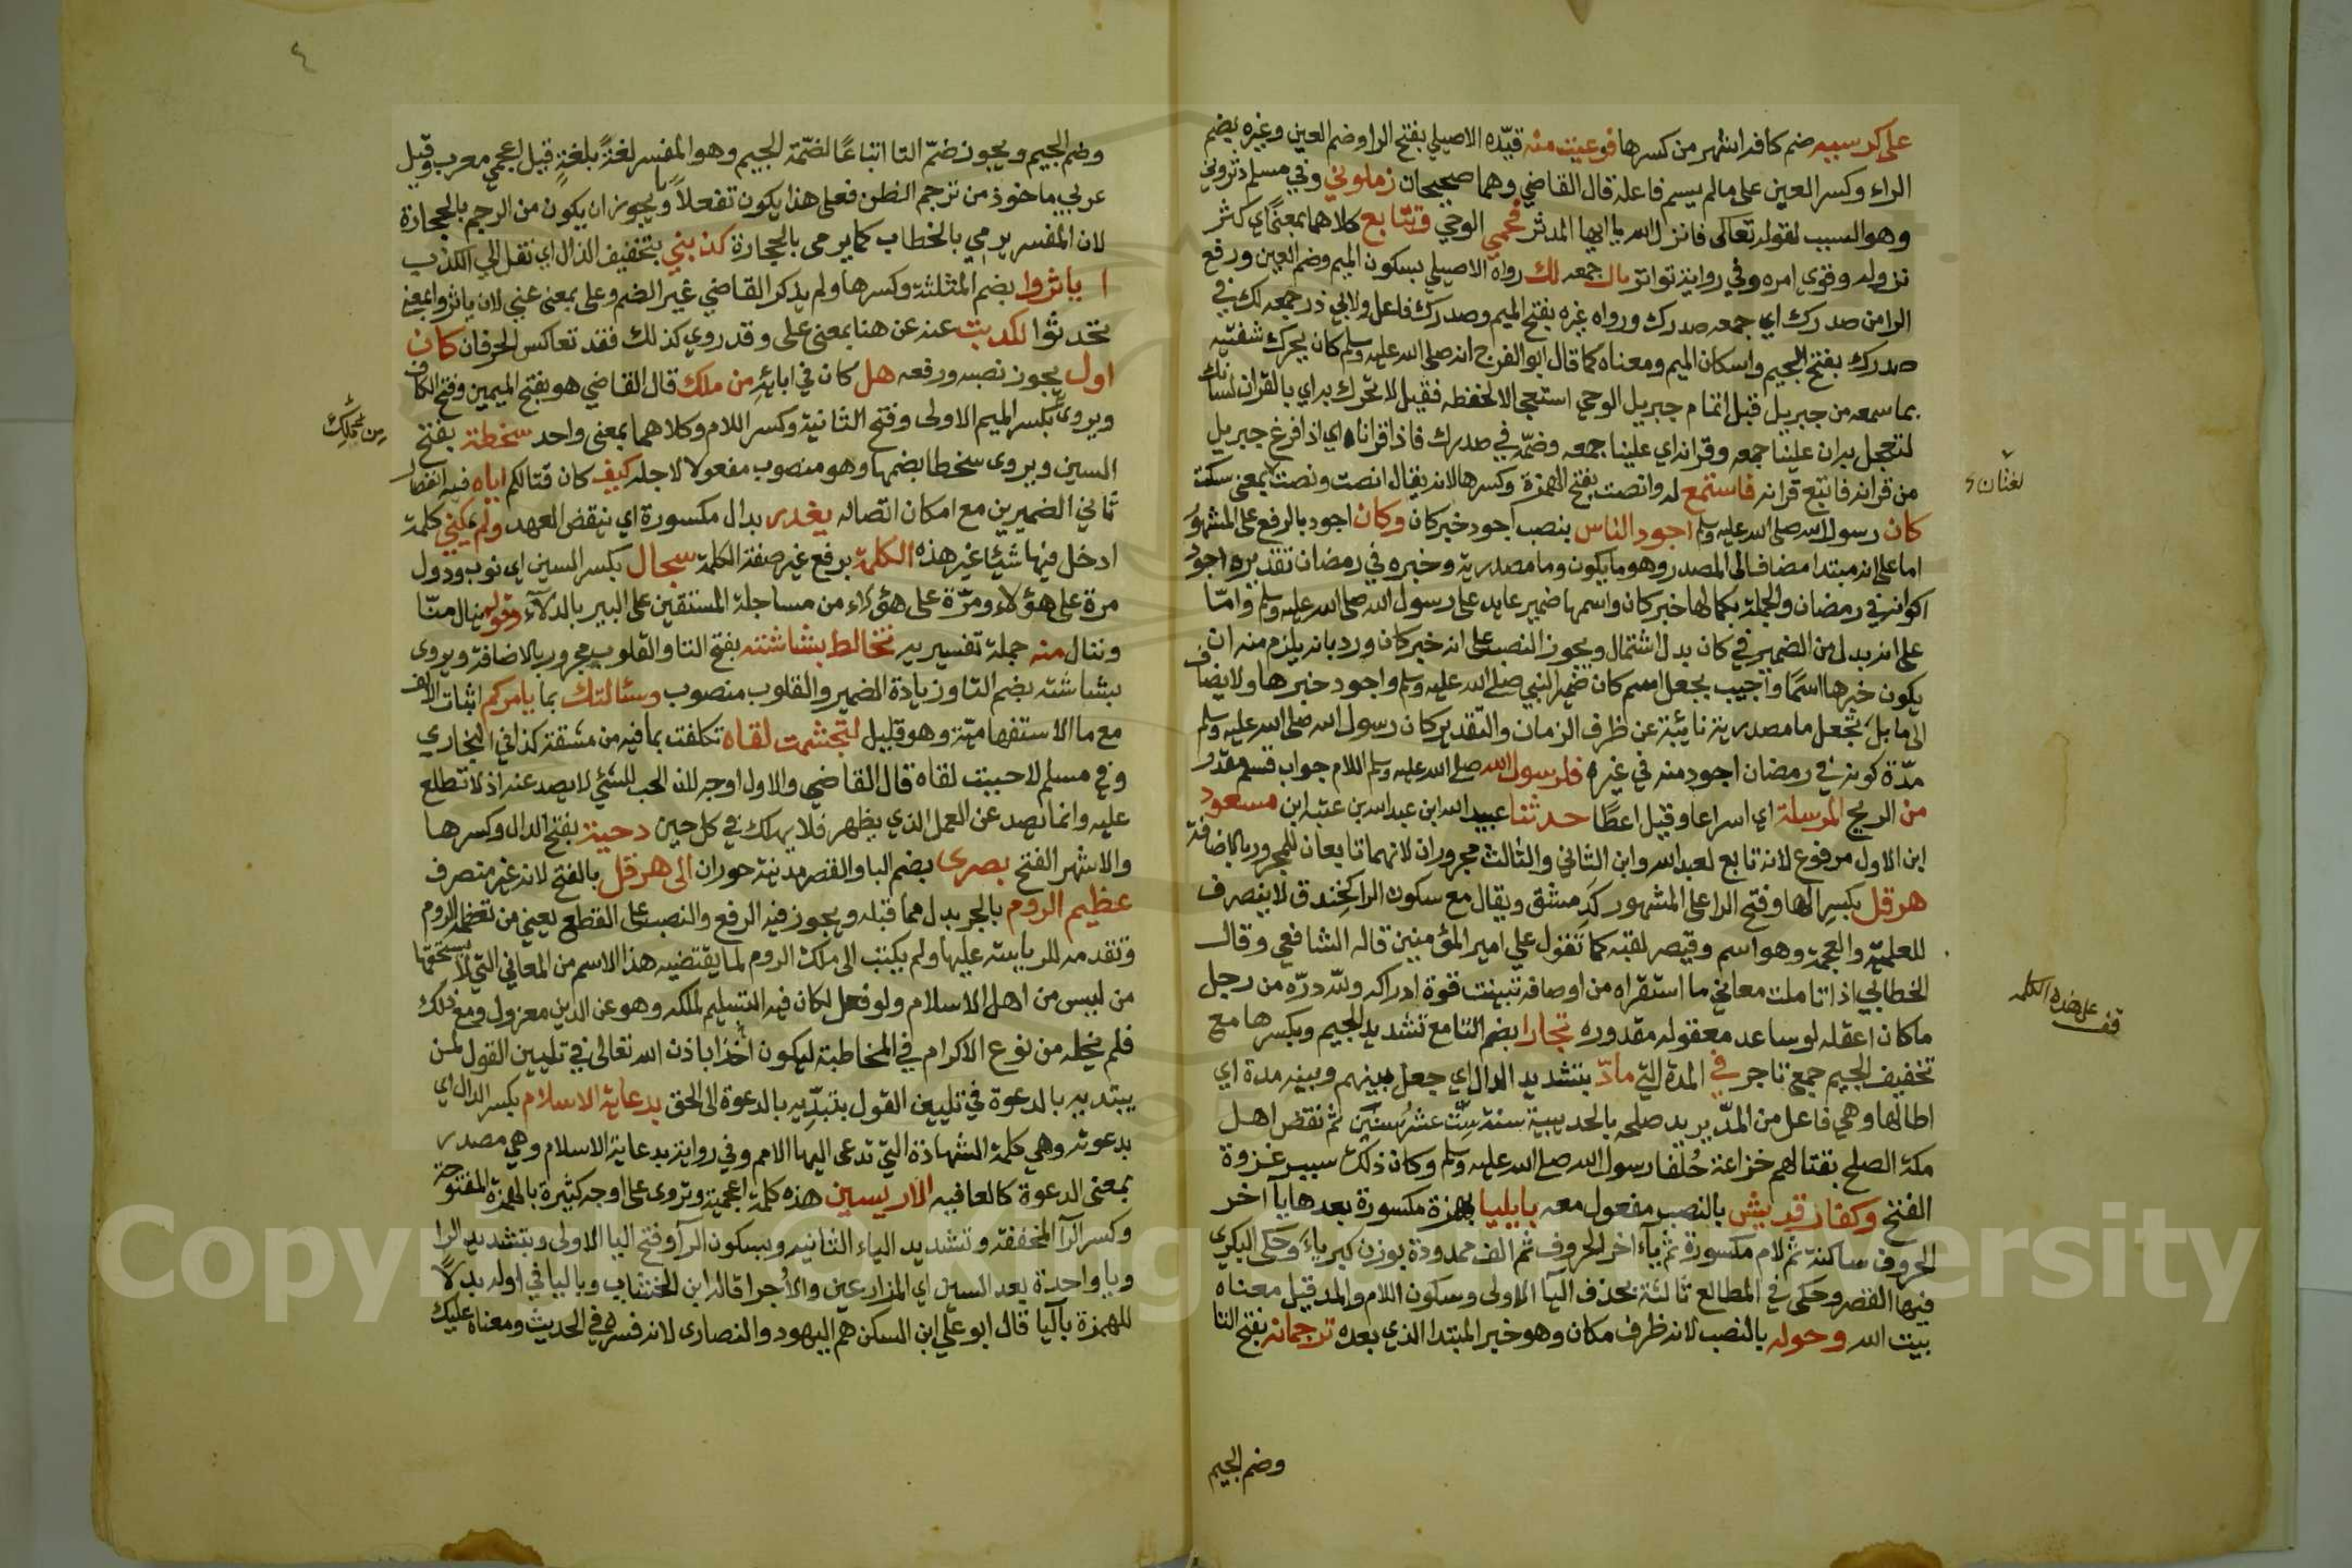 على كرسيه ضم كافه اشهر من كسرها فرعبت منه قيّده الاصيلي بفتح الرا وضم العين وغيره بضم
الراء وكسر العين على مالم يسم فاعله قال القاضي وهما صحيحان زملوني وفي مسلم دثروني
وهو السبب لقوله تعالى فانزل الله يا ايها المدثر فحمي الوحي وتتابع كلاهما بمعنى اي كثر
نزوله وقوي امره وفي رواية تواتر بدل جمعه لك رواه الاصيلي بسكون الميم وضم العين ورفع
الرا من صدرك اي جمعه صدرك ورواه غيره بفتح الميم وصدرك فاعل ولابي ذر جمعه لك في
صدرك بفتح الجيم واسكان الميم ومعناه كما قال ابو الفرج انه صلى الله عليه وسلم كان يحرك شفتيه
بما سمعه من جبريل قبل اتمام جبريل الوحي استعجالا لحفظه فقيل لا تحرك به اي بالقران لسانك
لتعجل به ان علينا جمعه وقرانه اي علينا جمعه وضمّه في صدرك فاذا قراناه اي اذا فرغ جبريل
من قرانه فاتبع قرانه فاستمع له وانصت بفتح الهمزة وكسرها لانه يقال انصت ونصت بمعنى سكت
لغتان
كان رسول الله صلى الله عليه وسلم اجود الناس بنصب اجود خبر كان وكان اجود بالرفع على المشهور
اما على انه مبتدا مضاف الى المصدر وهو ما يكون وما مصدرية وخبره في رمضان تقديره اجود
اكوانه في رمضان والجملة بكمالها خبر كان واسمها ضمير عايد على رسول الله صلى الله عليه وسلم وامّا
على انه بدل من الضمير في كان بدل اشتمال ويجوز النصب على انه خبر كان ورد بانه يلزم منه ان
يكون خبرها اسمًا واجيب بجعل اسم كان ضمير النبي صلى الله عليه وسلم واجود خبرها ولا يضاف
الى ما بل تجعل ما مصدرية نايبة عن ظرف الزمان والتقدير كان رسول الله صلى الله عليه وسلم
مدّة كونه في رمضان اجود منه في غيره فلرسول الله صلى الله عليه وسلم اللام جواب قسم مقدر
من الريح المرسلة اي اسراعا وقيل اعطًا حدثنا عبيد الله ابن عبد الله بن عتبه ابن مسعود
ابن الاول مرفوع لانه تابع لعبد الله وابن الثاني والثالث مجروران لانهما تابعان للمجرور بالاضافة
هرقل بكسر الها وفتح الرا على المشهور كدِمَشق ويقال مع سكون الرا كخِندق لا ينصرف
للعلمية والعجمة وهو اسم وقيصر لقبه كما تقول علي امير المؤمنين قاله الشافعي وقال
الخطابي اذا تاملت معاني ما استقراه من اوصافه تبينت قوة ادراكه ولله درّه من رجل
ما كان اعقله لو ساعد معقوله مقدوره تجارا بضم التا مع تشديد الجيم وبكسرها مع
قف على هذه الكلمه
تخفيف الجيم جمع تاجر في المدة التي مادّ بتشديد الدال اي جعل بينهم وبينه مدة اي
اطالها وهي فاعل من المدّ يريد صلحه بالحديبية سنة سِتّ عشرُ سِنيَن ثم نقض اهل
مكة الصلح بقتالهم خزاعة حُلفا رسول الله صلى الله عليه وسلم وكان ذلك سبب غزوة
الفتح وكفار قريش بالنصب مفعول معه بايليا بهمزة مكسورة بعدها يآ اخر
الحروف ساكنة ثم لام مكسورة ثم ياء اخر الحروف ثم الف ممدودة بوزن كبرياءَ وحكى البكري
فيها القصر وحكى في المطالع ثالثة بحذف اليآ الاولى وسكون اللام والمد قيل معناه
بيت الله وحوله بالنصب لانه ظرف مكان وهو خبر المبتدا الذي بعده ترجمانه بفتح التا
وضم الجيم
٤
وضم الجيم ويجوز ضمّ التا اتباعًا لضمّة الجيم وهو المفسر لغةً بلغةٍ قيل اعجمي معرب وقيل
عربي ماخوذ من ترجم الظن فعلى هذا يكون تفعلاً ويجوز ان يكون من الرجم بالحجارة
لان المفسر يرمي بالخطاب كما يرمى بالحجارة كذبني بتخفيف الذال اي نقل الي الكذب
ياثروا بضم المثلثة وكسرها ولم يذكر القاضي غير الضم وعلى بمعنى عني لان ياثروا بمعنى
تحدثوا لكذبت عنه عن هنا بمعنى على وقد روي كذلك فقد تعاكس الحرفان كان
اول يجوز نصبه ورفعه هل كان في ابائه من ملك قال القاضي هو بفتح الميمين وفتح الكاف
ويروى بكسر الميم الاولى وفتح الثانية وكسر اللام وكلاهما بمعنى واحد سخطة بفتح
من مَلِك
السين ويروى سخطا بضمها وهو منصوب مفعولا لاجله كيف كان قتالكم اياه فيه انفصال
ثاني الضميرين مع امكان اتصاله يغدر بدال مكسورة اي ينقض العهد ولم يمكني كلمة
ادخل فيها شيًا غير هذه الكلمة برفع غير صفة الكلمة سجال بكسر السين اي نوب ودول
مرة على هؤلاء ومرّة على هؤلاء من مساجلة المستقين على البير بالدلآء وقوله ينال منّا
وننال منه جملة تفسيريه تخالط بشاشته بفتح التا والقلوب مجرور بالاضافة ويروى
بشاشته بضم التا وزيادة الضمير والقلوب منصوب وسئالتك بما يامركم اثبات الالف
مع ما الاستفهامية وهو قليل لتجشمت لقاه تكلفت بما فيه من مشقة كذا في البخاري
وفي مسلم لاحببت لقاه قال القاضي والاول اوجه لان الحب للشئي لا يصد عنه اذ لا تطلع
عليه وانما يصد عن العمل الذي يظهر فلا يملك في كل حين دحية بفتح الدال وكسرها
والاشهر الفتح بصرى بضم البا والقصر مدينة حوران الى هرقل بالفتح لانه غير منصرف
عظيم الروم بالجر بدل مما قبله ويجوز فيه الرفع والنصب على القطع يعني من تعظمه الروم
وتقدمه للرياسة عليها ولم يكتب الى ملك الروم لما يقتضيه هذا الاسم من المعاني التي لا يستحقها
من ليس من اهل الاسلام ولو فعل لكان فيه التسليم لملكه وهو عن الدين معزول ومع ذلك
فلم يخله من نوع الاكرام في المخاطبة ليكون آخذا باذن الله تعالى في تليين القول لمن
يبتديه بالدعوة في تليين القول يبتدّيه بالدعوة الى الحق بدعاية الاسلام بكسر الدال اي
بدعوته وهي كلمة الشهادة التي تدعى اليها الامم وفي رواية بدعاية الاسلام وهي مصدر
بمعنى الدعوة كالعافيه الاريسين هذه كلمة اعجمية وتروى على اوجه كثيرة بالهمزة المفتوحة
وكسر الرآ المخففة وتشديد الياء الثانيه وبسكون الرآ وفتح اليا الاولى وبتشديد الرا
ويا واحدة بعد السين اي المزارعين والاُجرا قاله ابن الخشاب وباليا في اوله بدلاً
للهمزة يآليا قال ابو علي ابن السكن هم اليهود والنصارى لانه فسره في الحديث ومعناه عليك
Copyright © King Saud University